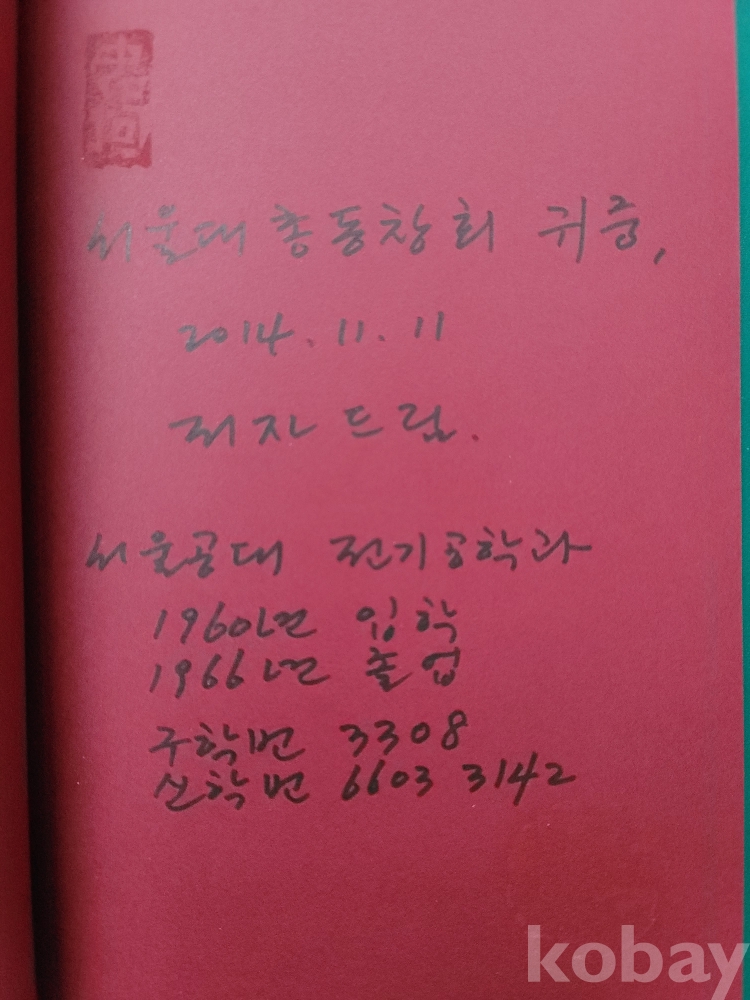 서울대 총동창회 귀중,
2014. 11. 11
저자 드림.
서울공대 전기공학과
1960년 입학
1966년 졸업
구학번 3308
신학번 6603 3142
kobay